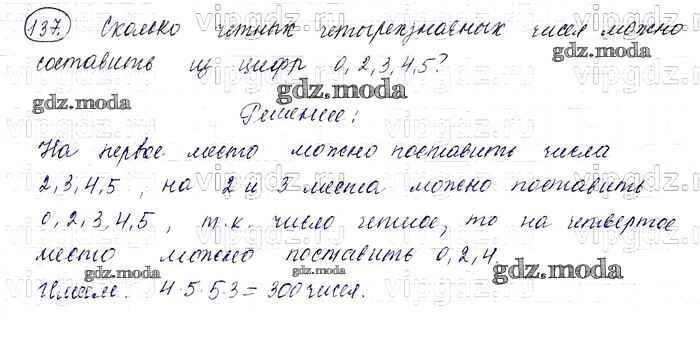 137. Сколько четных четырехзначных чисел можно
составить из цифр 0, 2, 3, 4, 5?
gdz.moda gdz.moda gdz.moda
Решение:
На первое место можно поставить числа
2, 3, 4, 5, на 2 и 3 места можно поставить
0, 2, 3, 4, 5, т.к. число четное, то на четвертое
место можно поставить 0, 2, 4.
gdz.moda gdz.moda gdz.moda
Имеем. 4·5·5·3 = 300 чисел.